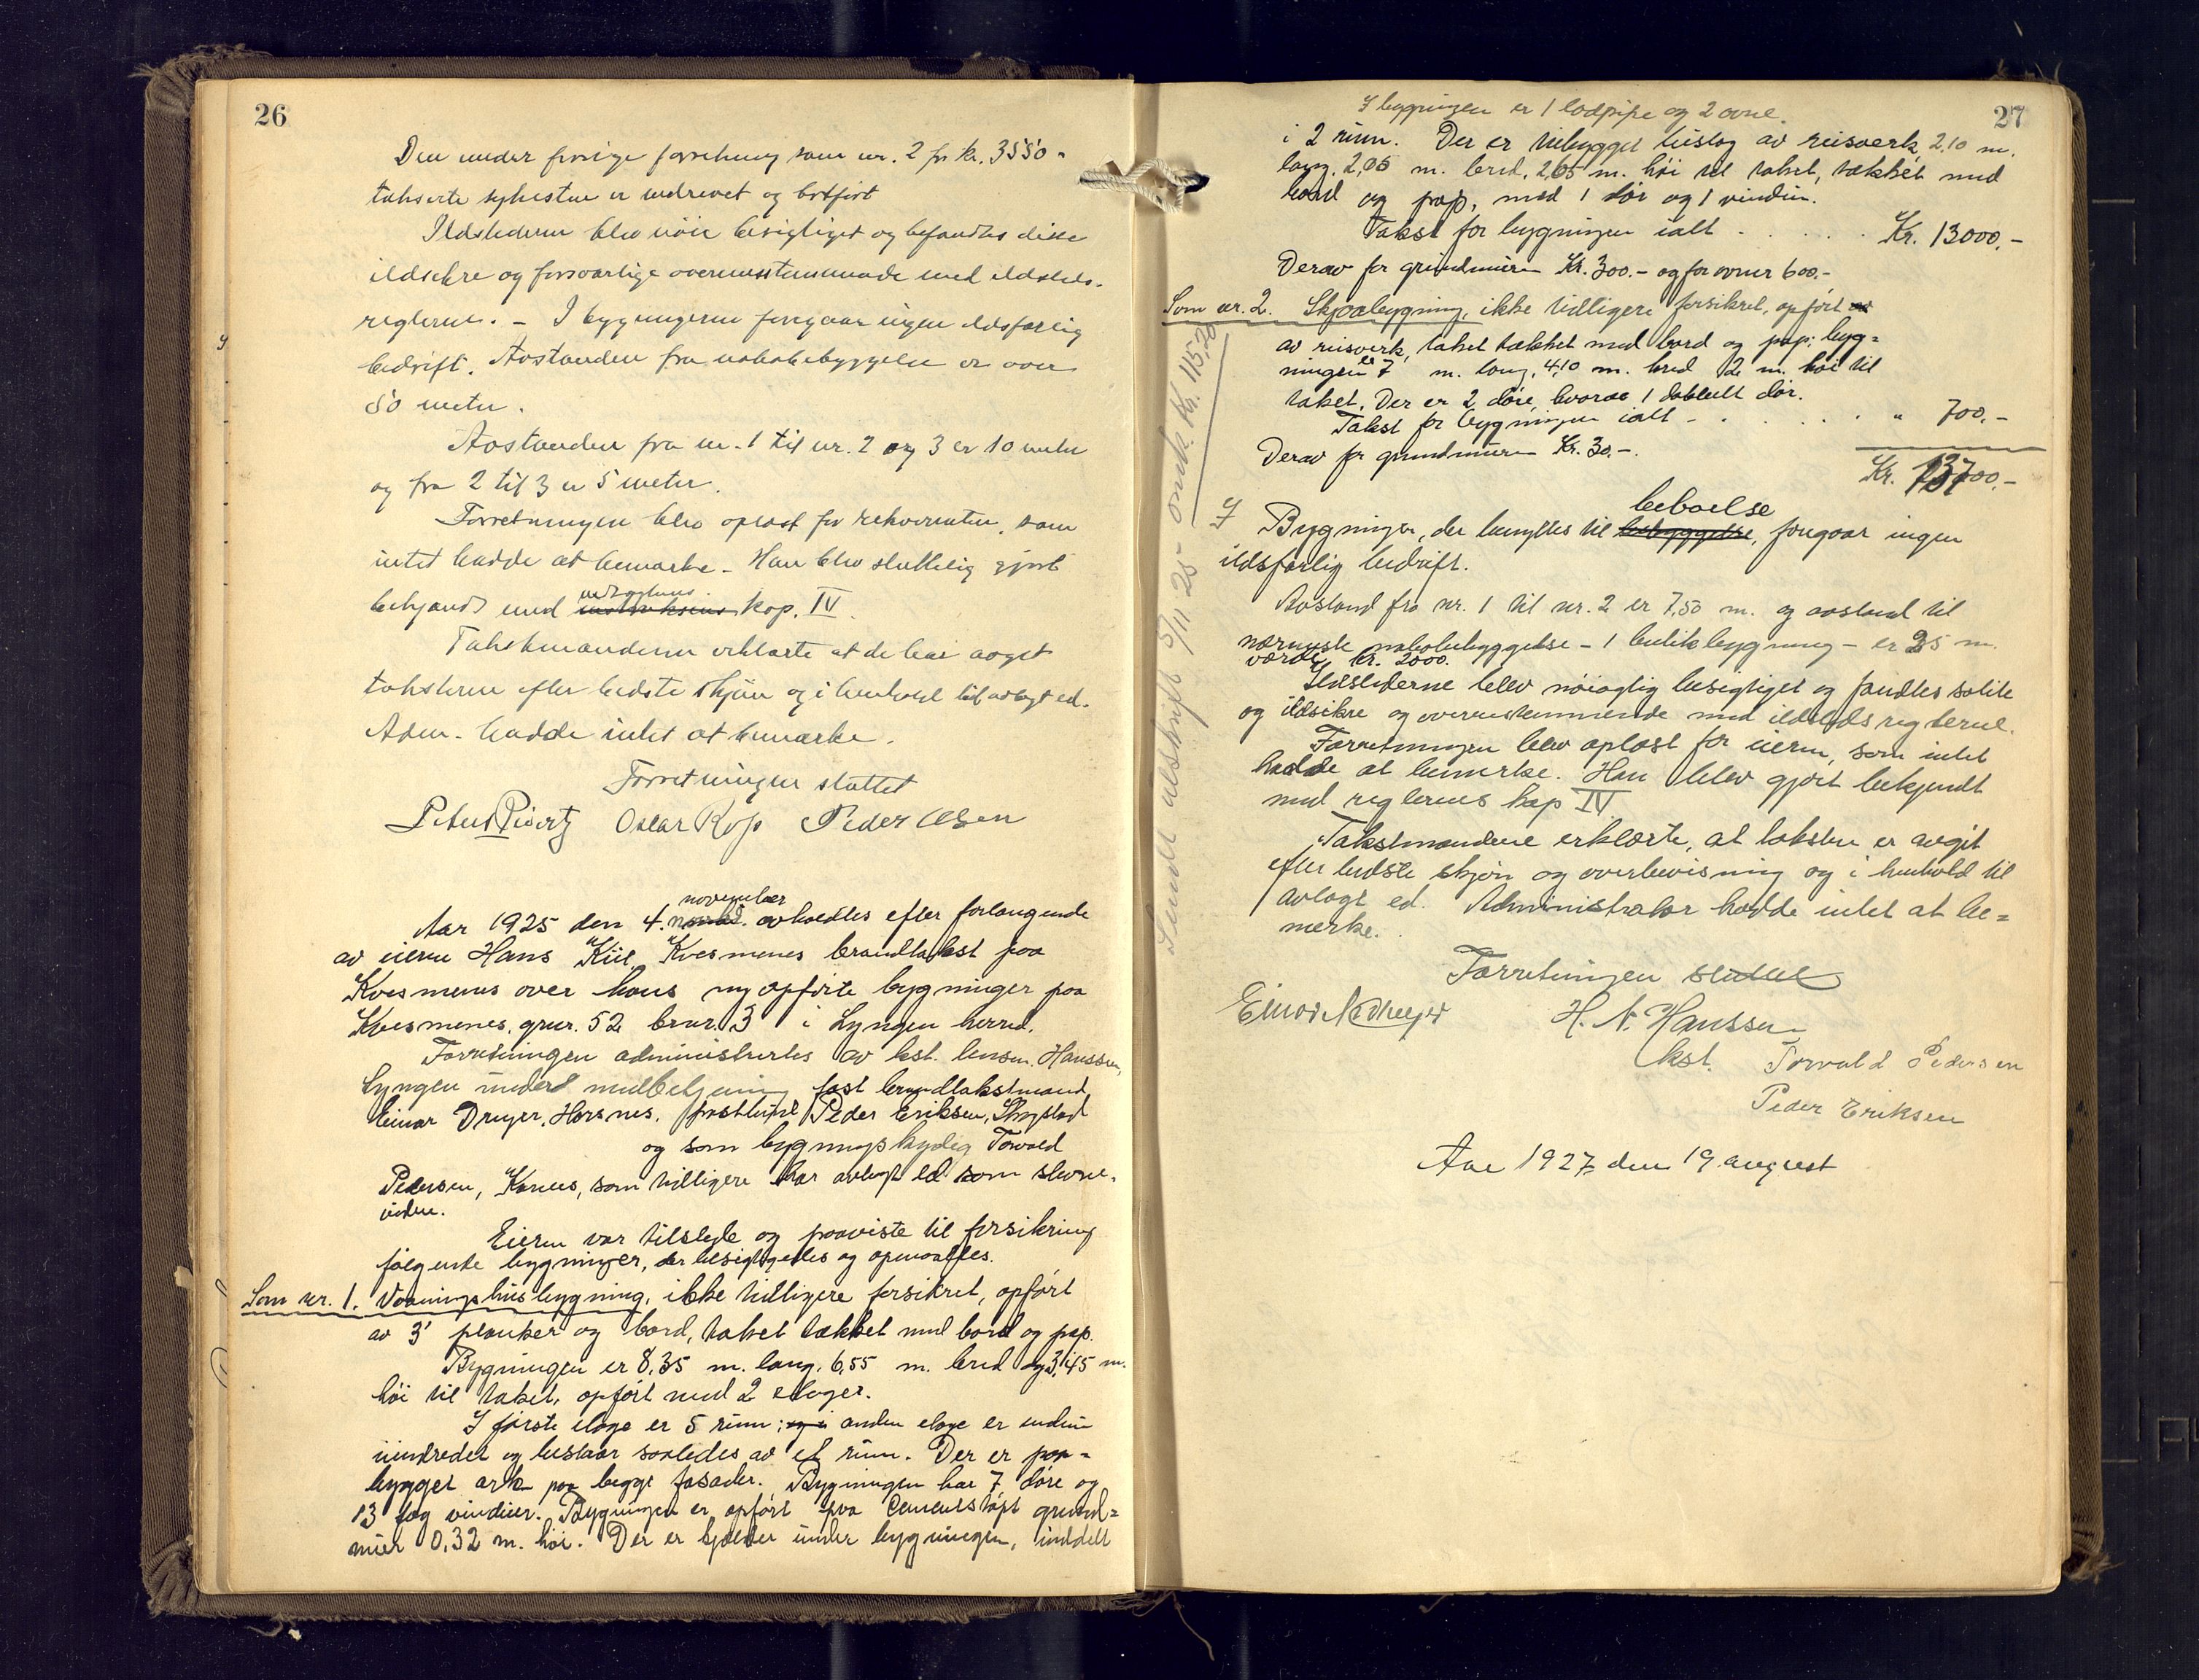 26
Den under forrige forretning som nr. 2 for kr. 3550.-
takserte sykestue er nedrevet og bortført
Ildstederne blev nøie besigtiget og befandtes disse
ildsikre og forsvarlige overensstemmende med ildsteds-
reglerne. - I bygningerne foregaar ingen ildsfarlig
bedrift. Avstanden fra nabobebyggelse er over
50 meter.
Avstanden fra nr. 1 til nr. 2 og 3 er 10 meter
og fra 2 til 3 er 5 meter.
Forretningen blev oplæst for rekvirenten, som
intet hadde at bemærke. Han blev sluttelig gjort
bekjendt med reglernes kap. IV.
Takstmændene erklærte at de har avgit
taksterne efter bedste skjøn og i henhold til avlagt ed.
Adm. hadde intet at bemærke.
Forretningen sluttet
Oscar Peder Olsen
november
Aar 1925 den 4. avholdtes efter forlangende
av eieren Hans Kiil Kvesmenes brandtakst paa
Kvesmenes over hans nyopførte bygninger paa
Kvesmenes, gnr. 52 brnr. 3 i Lyngen herred.
Forretningen administrertes av kst. lensm. Hanssen,
Lyngen under medbetjening fast brandtakstmand
Einar Dreyer, Horsnes, Peder Eriksen,
og som bygningskyndig Torvald
Pedersen, som tidligere har avlagt ed som skjøns-
Eieren var tilstede og paaviste til forsikring
følgende bygninger, der besigtigedes og opmaaltes.
Som nr. 1. Vaaningshusbygning, ikke tidligere forsikret, opført
av 3" planker og bord, taket tækket med bord og pap.
Bygningen er 8,35 m. lang, 6,55 m. bred og 3,45 m.
høi til taket, opført med 2 etager.
I første etage er 5 rum; og i anden etage er endnu
uindredet og bestaar saaledes av et rum. Der er paa-
bygget ark paa begge fasader. Bygningen har 7 døre og
13 fag vinduer. Bygningen er opført paa cementstøpt grund-
mur 0,32 m. høi. Der er kjælder under bygningen, inddelt
27
I bygningen er 1 lodpipe og 2 ovne.
i 2 rum. Der er tilbygget bislag av reisverk 2,10 m.
lang, 2,05 m. bred, 2,65 m. høi til taket, tækket med
bord og pap, med 1 dør og 1 vindu.
Takst for bygningen ialt . . . . . Kr. 13000.-
Derav for grundmuren Kr. 300.- og for ovner 600.-
Som nr. 2. Skjaabygning, ikke tidligere forsikret, opført
av reisverk, taket tækket med bord og pap; byg-
ningen er 7 m. lang, 4,10 m. bred 2 m. høi til
taket. Der er 2 døre, hvorav 1 dobbelt dør.
Takst for bygningen ialt - . . . . " 700.-
Derav for grundmuren Kr. 30.-.
Kr. 13700.-
beboelse
I Bygningen, der benyttes til bebyggelse, foregaar ingen
ildsfarlig bedrift.
Avstand fra nr. 1 til nr. 2 er 7,50 m. og avstand til
nærmeste nabobebyggelse - 1 butikbygning - er 25 m.
værdi kr. 2000.
Ildstederne blev nøiagtig besigtiget og fandtes solide
og ildsikre og overensstemmende med ildstedsreglerne.
Forretningen blev oplæst for eieren, som intet
hadde at bemerke. Han blev gjort bekjendt
med reglernes kap IV
Takstmændene erklærte, at taksten er avgit
efter bedste skjøn og overbevisning og i henhold til
avlagt ed. Administrator hadde intet at be-
merke.
Forretningen sluttet
Einar Dreyer H. N. Hanssen
kst. Torvald Pedersen
Peder Eriksen
Aar 1927 den 19. august
Sendt utskrift 5/11 25 - omk. Kr. 115,20